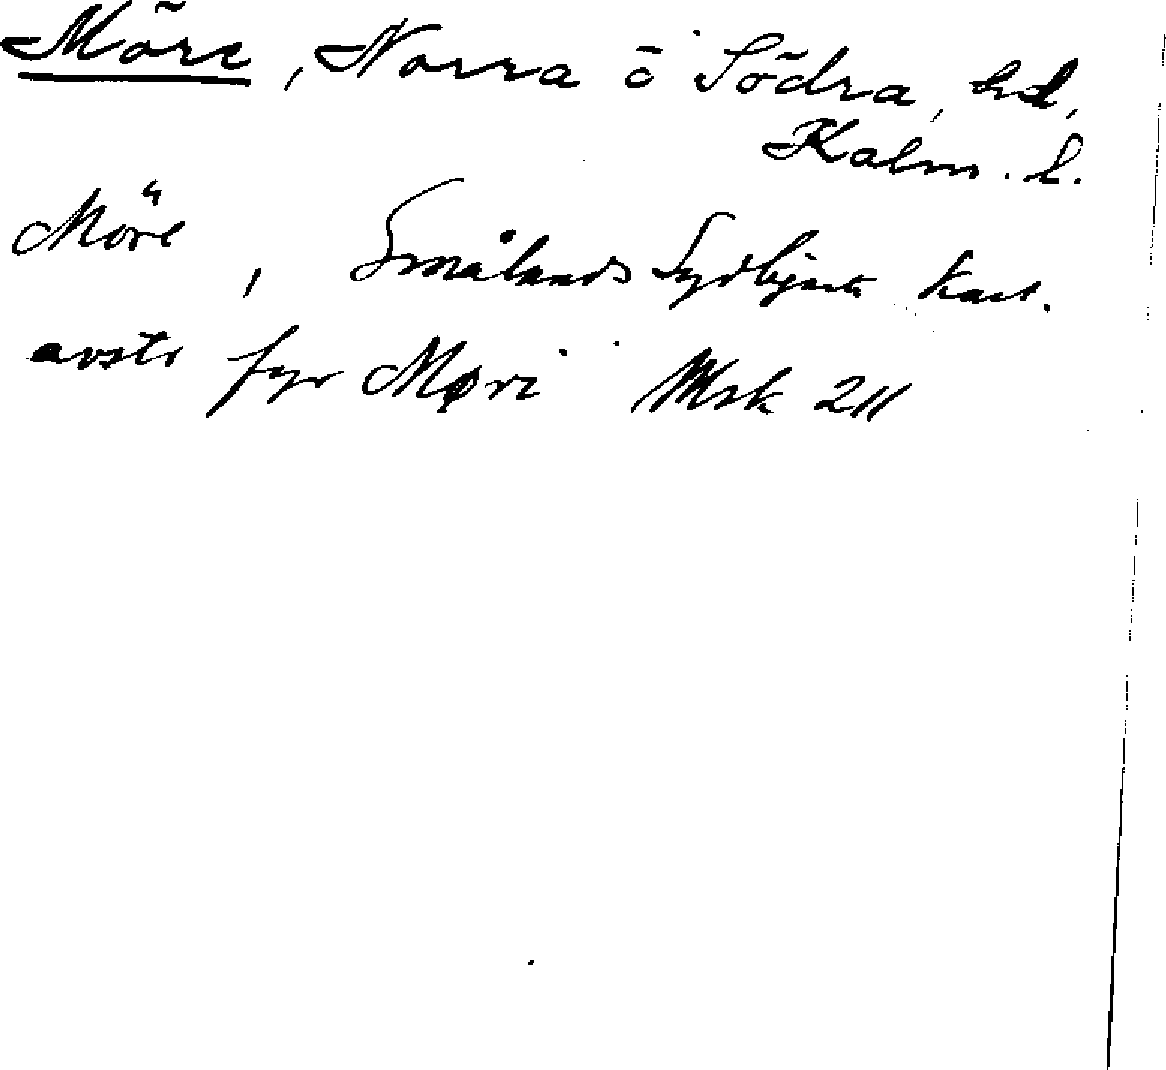 Möre, Norra o Södra, hd,
Kalm. l.
Möre, Smålands Sydöstra kust.
avstr fyr Møri Msk 211